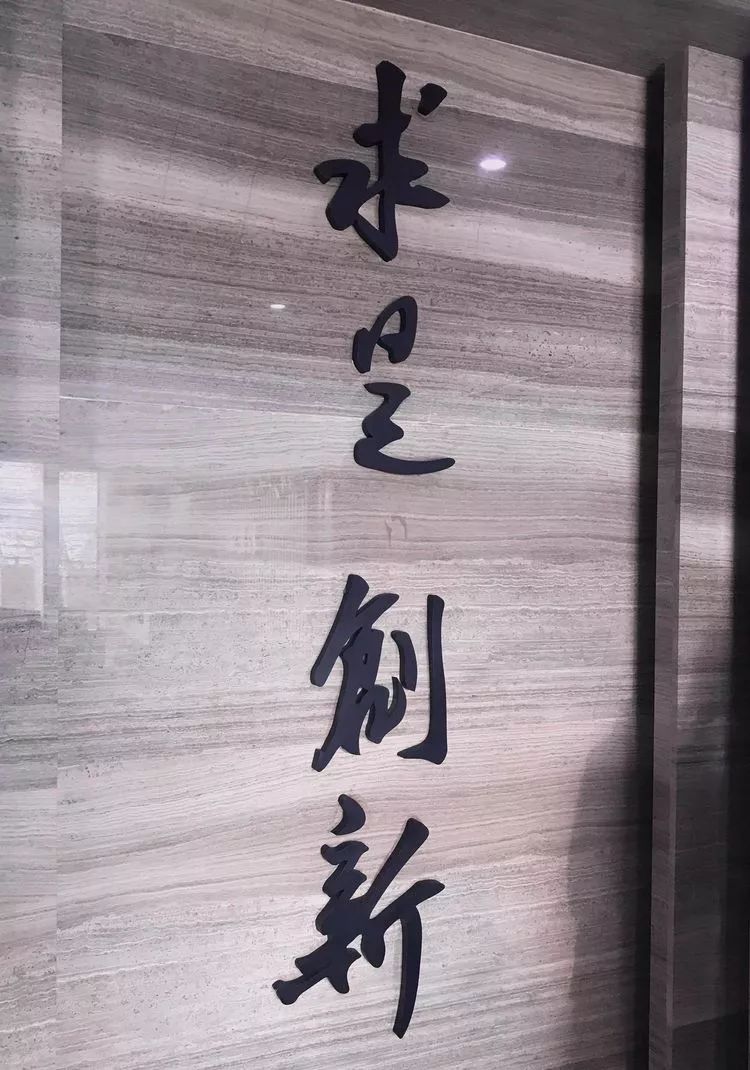 求是創新